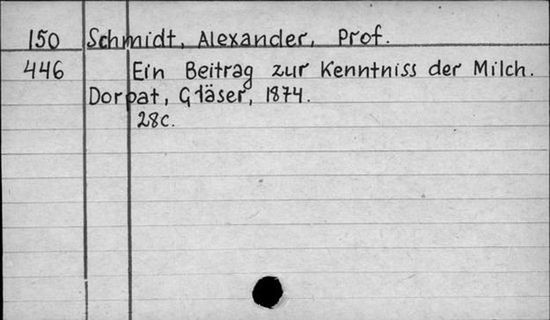 150 Schmidt, Alexander, Prof.
446 Ein Beitrag zur Kenntniss der Milch.
Dorpat, Gläser, 1874.
28c.